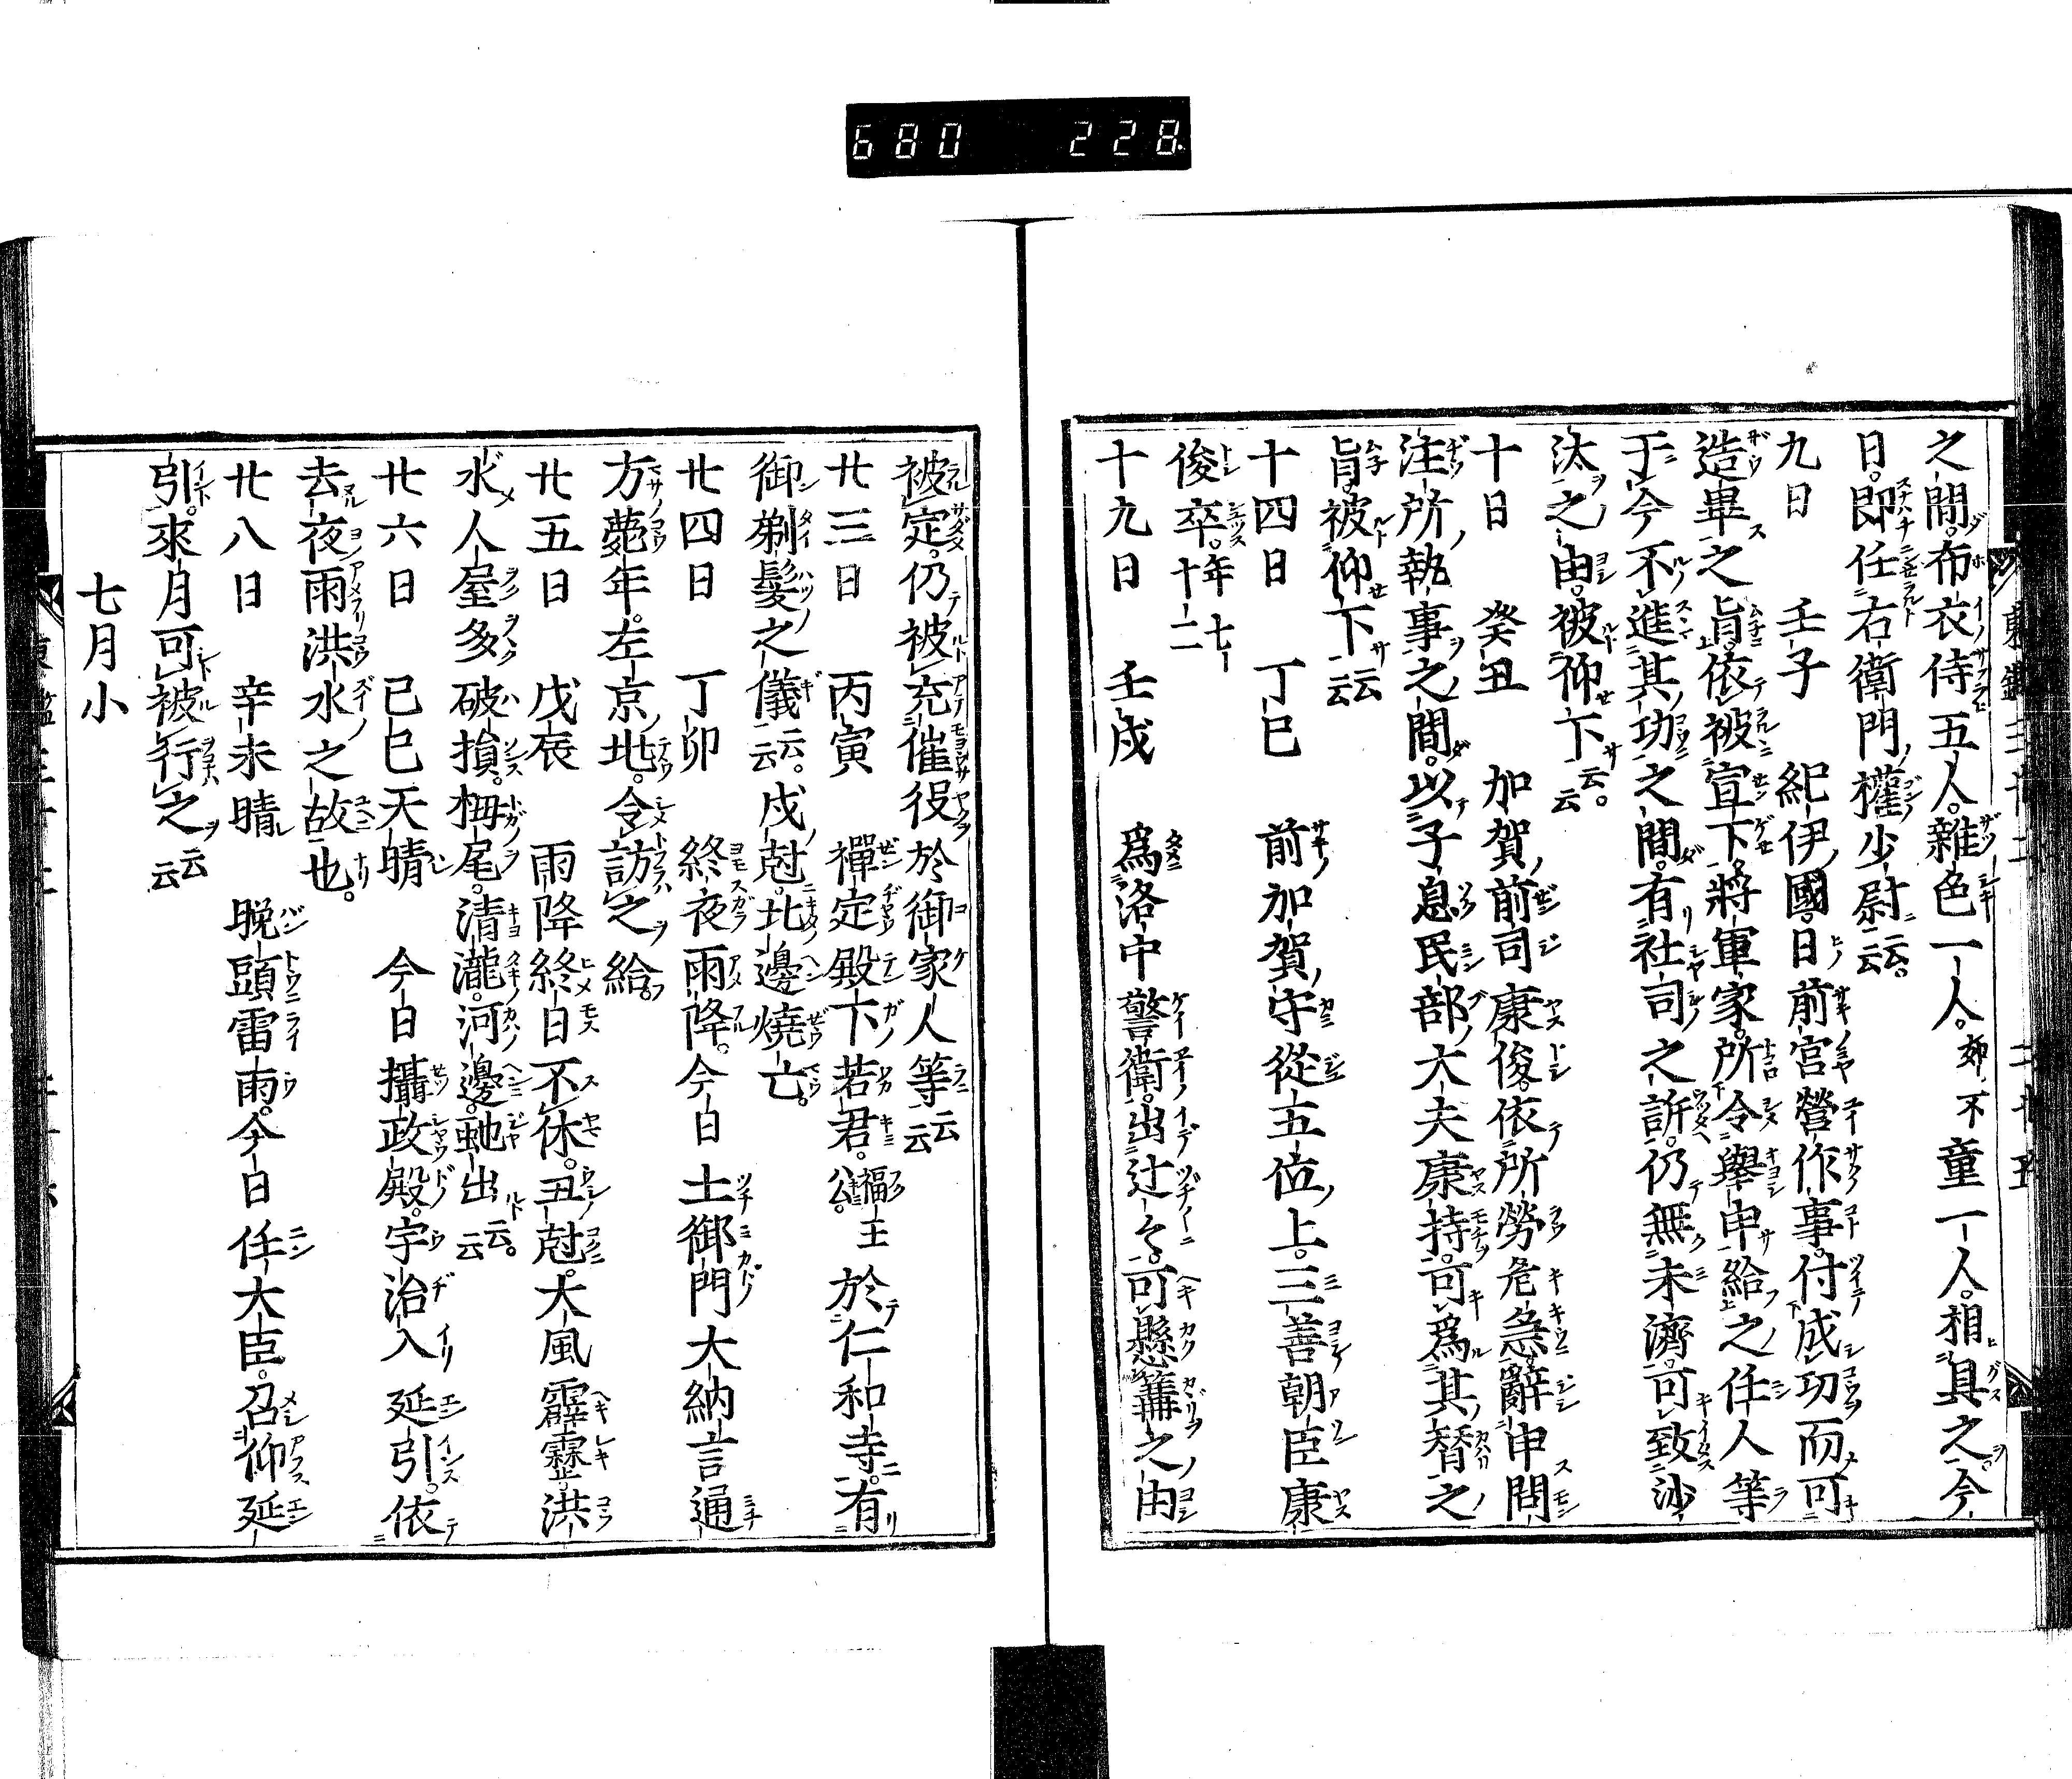 680 228
之間。布衣侍五人。雜色一人。郊不童一人。相具之。今
日。即任右衛門權少尉云云。
九日 壬子 紀伊國。日前宮營作事。付成功而可
造畢之旨。依被宣下。將軍家。所令擧申給之任人等
于今不進其功之間。有社司之訴。仍無未濟。可致沙
汰之由。被仰下云云。
十日 癸丑 加賀前司康俊。依所勞危急。辭申問
注所執事之間。以子息民部大夫康持。可爲其替之
旨。被仰下云云
十四日 丁巳 前加賀守從五位上。三善朝臣康
俊卒。年七十二
十九日 壬戌 爲洛中警衛。出辻々。可懸篝之由
被定。仍被充催役於御家人等云云
廿三日 丙寅 禪定殿下若君。福王公。於仁和寺。有
御剃髮之儀云云。戌尅。北邊燒亡。
廿四日 丁卯 終夜雨降。今日土御門大納言通
方薨年。左京兆。令訪之給。
廿五日 戊辰 雨降終日不休。丑尅。大風霹靂。洪
水。人屋多破損。栂尾。清瀧。河邊。虵出云云。
廿六日 己巳天晴 今日攝政殿。宇治入延引。依
去夜雨洪水之故也。
廿八日 辛未晴 晩頭雷雨。今日任大臣。召仰延
引。來月可被行之云云
七月小